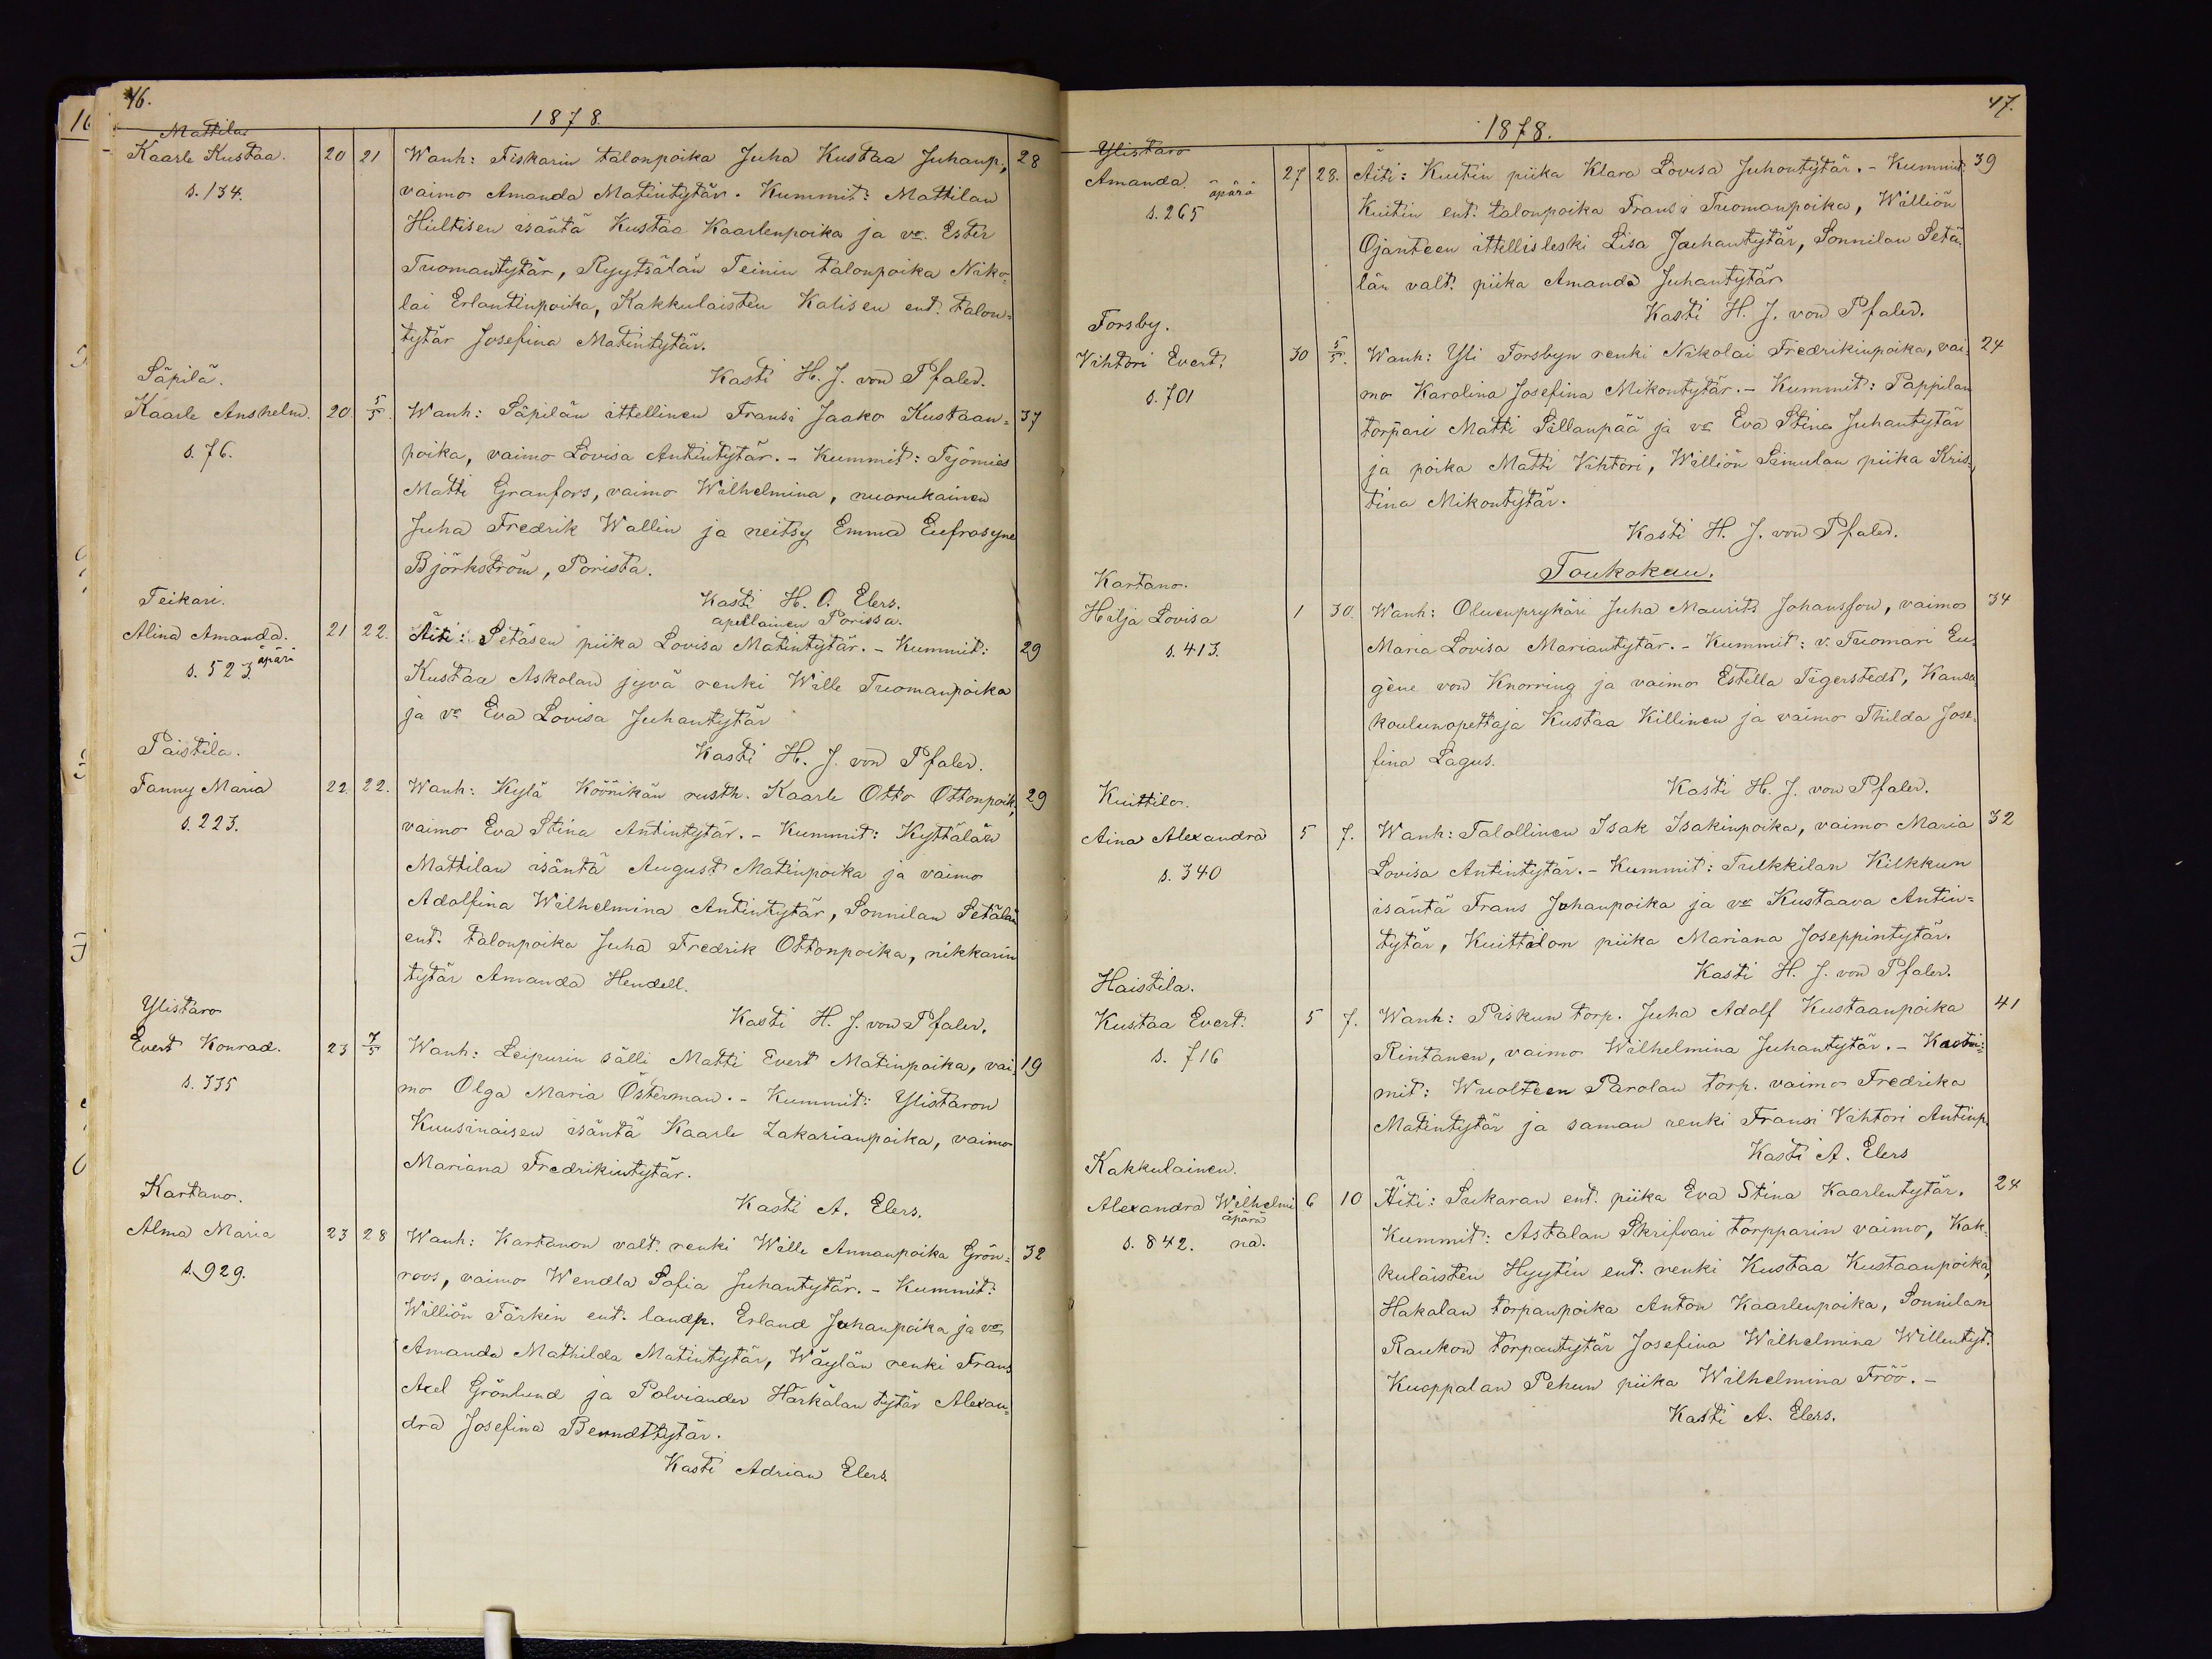 46.
1878.
Mattila
Kaarle Kustaa. 20 21 Wanh: Fiskarin talonpoika Juha Kustaa Juhanp., 28
s. 134. vaimo Amanda Matintytär. Kummit: Mattilan
Hiltisen isäntä Kustaa Kaarlenpoika ja vo. Ester
Tuomantytär, Ryytsälän Teinin talonpoika Niko=
lai Erlantinpoika, Kakkulaisten Kalisen ent. talon=
tytär Josefina Matintytär.
Kasti H. J. von Pfaler.
Säpilä.
Kaarle Anshelm. 20. 5/5. Wanh: Säpilän ittellinen Fransi Jaako Kustaan= 37
s. 76. poika, vaimo Lovisa Antintytär. - Kummit: Työmies
Matti Granfors, vaimo Wilhelmina, nuorukainen
Juha Fredrik Wallin ja neitsy Emma Eufrosyne
Björkström, Porista.
Kasti H. O. Elers.
apellainen Porissa.
Teikari.
Alina Amanda. 21 22. Äiti: Setäsen piika Lovisa Matintytär. - Kummit: 29
äpärä
s. 523. Kustaa Askolan jyvä renki Wille Tuomanpoika
ja vo Eva Lovisa Juhantytär
Kasti H. J. von Pfaler.
Paistila.
Fanny Maria 22. 22. Wanh: Kylä Köönikän rusth. Kaarle Otto Ottonpoik, 29
s. 223. vaimo Eva Stina Antintytär. - Kummit: Kyttälän
Mattilan isäntä August Matinpoika ja vaimo
Adolfina Wilhelmina Antintytär, Sonnilan Setälän
ent. talonpoika Juha Fredrik Ottonpoika, nikkarin
tytär Amanda Hendell.
Kasti H. J. von Pfaler.
Ylistaro
Evert Konrad. 23 7/5 Wanh: Leipurin sälli Matti Evert Matinpoika, vai= 19
s. 335 mo Olga Maria Österman. - Kummit: Ylistaron
Kuusinaisen isäntä Kaarle Zakarianpoika, vaimo
Mariana Fredrikintytär.
Kasti A. Elers.
Kartano.
Alma Maria 23 28 Wanh: Kartanon valt. renki Wille Annanpoika Grön= 32
s. 929. roos, vaimo Wendla Sofia Juhantytär. - Kummit:
Williön Färkin ent. landp. Erland Juhanpoika ja vo
Amanda Mathilda Matintytär, Wäylän renki Frans
Axel Grönlund ja Polviander Härkälan tytär Alexan=
dra Josefina Berndttytär.
Kasti Adrian Elers.
47.
1878.
Ylistaro
Amanda. 27 28. Äiti: Kuitin piika Klara Lovisa Juhontytär. - Kummit: 39
äpärä
s. 265 Kuitin ent. talonpoika Fransi Tuomanpoika, Williön
Ojanteen ittellisleski Lisa Juhantytär, Sonnilan Setä=
län valt. piika Amanda Juhantytär
Kasti H. J. von Pfaler.
Forsby.
Vihtori Evert. 30 5/5. Wanh: Yli Forsbyn renki Nikolai Fredrikinpoika, vai= 24
s. 701 mo Karolina Josefina Mikontytär. - Kummit: Pappilan
torpari Matti Sillanpää ja vo Eva Stina Juhantytär
ja poika Matti Vihtori, Williön Simulan piika Kris=
tina Mikontytär.
Kasti H. J. von Pfaler.
Toukokuu.
Kartano.
Hilja Lovisa 1 30. Wanh: Oluenprykäri Juha Maurits Johansson, vaimo 34
s. 413. Maria Lovisa Mariantytär. - Kummit: v. Tuomari Eu=
gène von Knorring ja vaimo Estella Tigerstedt, Kansa
koulunopettaja Kustaa Killinen ja vaimo Thilda Jose=
fina Lagus.
Kasti H. J. von Pfaler.
Kuittila.
Aina Alexandra 5 7. Wanh: Talollinen Isak Isakinpoika, vaimo Maria 32
s. 340 Lovisa Antintytär. - Kummit: Tulkkilan Kilkkun
isäntä Frans Juhanpoika ja vo Kustaava Antin=
tytär, Kuittilan piika Mariana Joseppintytär.
Kasti H. J. von Pfaler.
Haistila.
Kustaa Evert. 5 7. Wanh: Piskun torp. Juha Adolf Kustaanpoika 41
s. 716 Rintanen, vaimo Wilhelmina Juhantytär. -
mit: Wuolteen Parolan torp. vaimo Fredrika
Matintytär ja saman renki Fransi Vihtori Antinp.
Kasti A. Elers
Kakkulainen.
Alexandra Wilhelmi 6 10 Äiti: Sukaran ent. piika Eva Stina Kaarlentytär. 24
äpärä
s. 842. na. Kummit: Astalan Skrifvari torpparin vaimo, Kak=
kulaisten Hyytin ent. renki Kustaa Kustaanpoika,
Hakalan torpanpoika Anton Kaarlenpoika, Sonnilan
Raukon torpantytär Josefina Wilhelmina Willentyt.
Kuoppalan Pekun piika Wilhelmina Fröö. -
Kasti A. Elers.